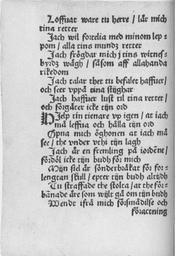 Loffuat ware tu herre / lär mich
tina retter
Jach wil förelia med minom lep-
pom / alla tins mundz retter
Jach frögdar mich j tins witnes-
byrdz wägh / såsom aff allahanda
rikedom
Jach talar thet tu befalet haffuer /
och seer vppå tina stijghar
Jach haffuer lust til tina retter /
och förgäter icke tijn ordh
Hielp tin tienare vp igen / at iach
må leffua och hålla tijn ord
Opna mich öghonen at iach må
see / the vnder vthi tijn lagh
Jach är en fremling på iordene /
fördöl icke tijn budh för mich
Mijn siel är sönderbråkat för for-
lengtan skull / epter tijn budh altidh
Tu straffade the stolta / at the för-
bänade äre som wijka gå om tijn budh
Wende ifrå mich försmädilse och
förachtning